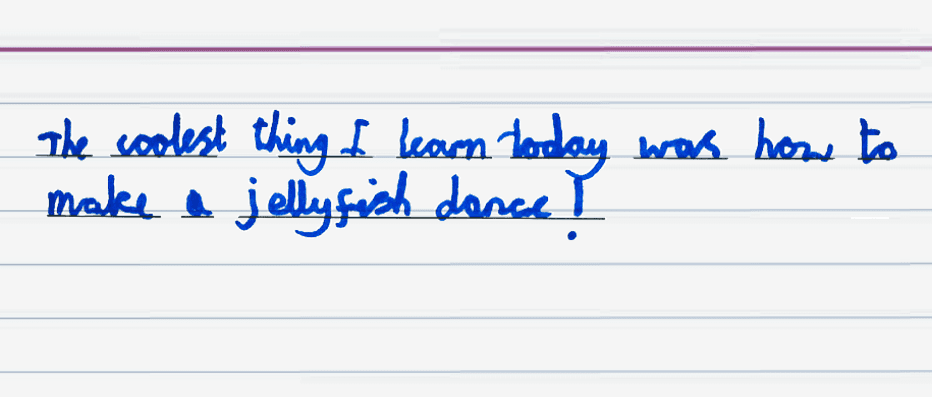 The coolest thing I learn today was how to
make a jellyfish dance!